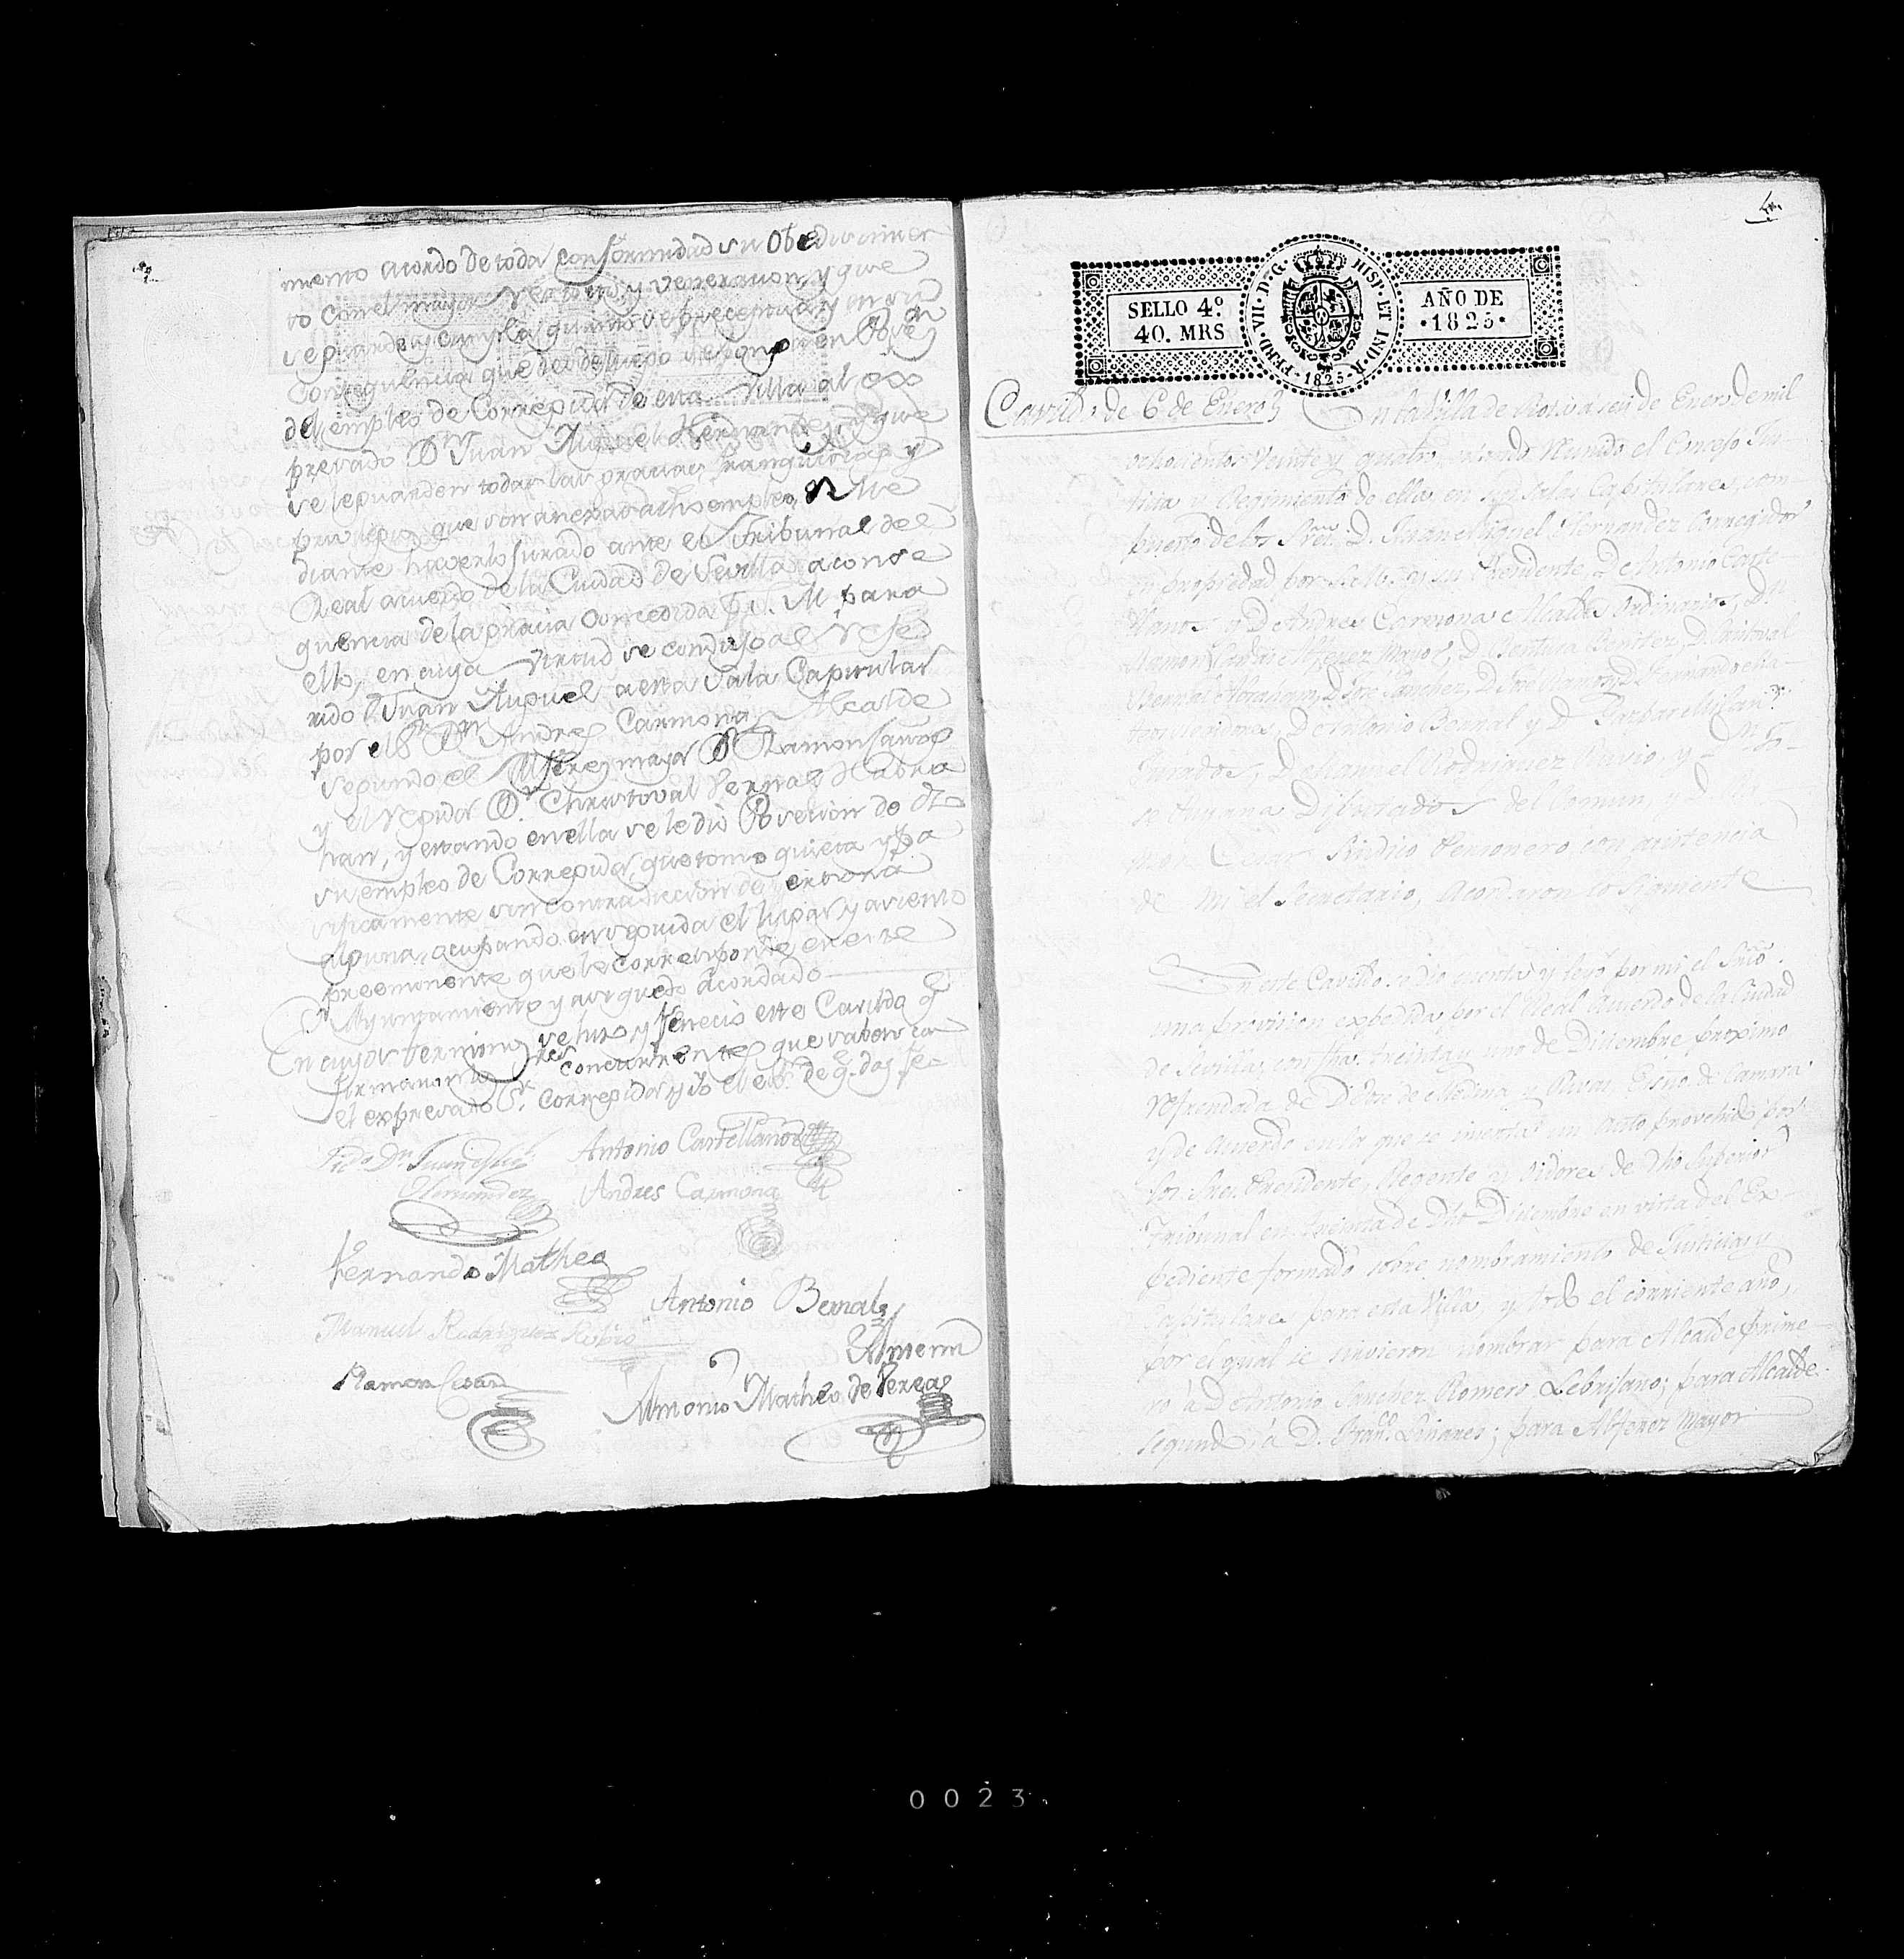 miento acordo de toda conformidad su Obedecimien
to con el mayor respeto y veneracion, y que
se guarde y cumpla quanto se preceptua, y en su
consequencia que desde luego se ponga en Pose
del empleo de Corregidor de esta Villa al ex
presado Dn Juan Miguel Hernandez, y que
se le guarden todas las gracias, franquicias y
que son anexas a dicho empleo, me
diante haverlo jurado ante el Tribunal del
Real acuerdo de la Ciudad de Sevilla a conse
quencia de la gracia concedida pr. S. M. para
ello, en cuya virtud se condujo al refe
rido Dn Juan Miguel a esta Sala Capitular
por el Sr. Dn Andres Carmona Alcalde
segundo, el Alferez mayor Dn Ramon Santos
y el regidor Dn. Christoval Bernal Habra
han, y estando en ella se le dió Posesion de
su empleo de Corregidor, que tomó quieta y pa
cificamente sin contradiccion de persona
alguna, ocupando en seguida el lugar y asiento
preeminente que le corresponde en este
Ayuntamiento y asi quedó acordado
En cuyos terminos se hizo y feneció este Cavildo q.
firmaron los Sres concurrentes que saben con
el expresado Sr. Corregidor, y Yo el esno. de q. doy fee
Licdo Dn Juan Miguel
Hernandez
Antonio Castellanos
Andres Carmona
Fernando Matheo
Antonio Bernal
Manuel Rodriguez Rubio
Ramon Cesar
Antemi
Antonio Matheo de Perea
4
SELLO 4º.
40. MRS
FERD. VII. D. G. HISP. ET IND. R. 1825
AÑO DE
1825
Cavildo de 6 de Enero
En la Villa de a seis de Enero de mil
ochocientos veinte y quatro, estando reunido el Concejo Jus
ticia y Regimiento de ella en sus Salas Capitulares, com
puesto de los Sres. D. Juan Miguel Hernandez Corregidor
en propiedad por S. M. y su Presidente, D. Antonio Caste
llanos, y D. Andres Carmona Alcaldes Ordinarios, D.
Ramon Alferez Mayor, D. Ventura Benitez, D. Cristoval
Bernal Abraham, D. Jose Sanchez, D. Jose Ramos, D. Fernando Ma
Regidores, D. Antonio Bernal y D.
Jurados, D. Manuel Rodriguez Rubio, y D.
Diputados del Comun, y D. Ra
mon Cesar Sindico Personero con asistencia
de mi el Secretario, Acordaron lo Siguiente
En este Cavildo se dio cuenta y leyó por mi el Srio.
una provision expedida por el Real Acuerdo de la Ciudad
de Sevilla, con fha. treinta y uno de Diciembre proximo
refrendada de D. Jose de Medina y Rivas Esno de Camara
y de Acuerdo en la que se inserta un auto provehido por
los Sres. Presidente, Regente y Oidores de dho Superior
Tribunal en treinta de dho Diciembre en vista del Ex
pediente formado sobre nombramiento de Justicia y
Capitulares para esta Villa, y el corriente año,
por el qual se sirvieron nombrar para Alcalde prime
ro á D. Antonio Sanchez Romero Lebrijano; para Alcalde
segundo á D. Franco. Linares; para Alferez Mayor
0023